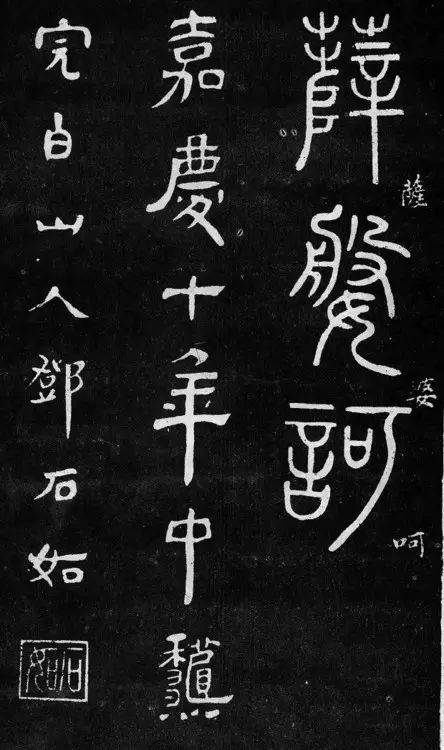 薛媻訶
薩
婆
呵
嘉慶十年中龝
完白山人鄧石如
石如